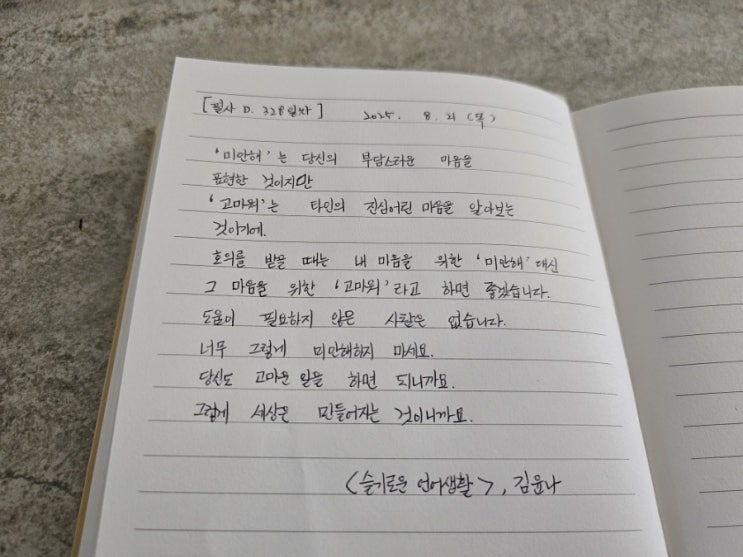 [필사 D. 328일차] 2025. 8. 21 (목)
'미안해'는 당신의 부담스러운 마음을
표현한 것이지만
'고마워'는 타인의 진심어린 마음을 알아보는
것이기에.
호의를 받을 때는 내 마음을 위한 '미안해' 대신
그 마음을 위한 '고마워'라고 하면 좋겠습니다.
도움이 필요하지 않은 사람은 없습니다.
너무 그렇게 미안해하지 마세요.
당신도 고마운 일을 하면 되니까요.
그렇게 세상은 만들어지는 것이니까요.
<슬기로운 언어생활>, 김윤나